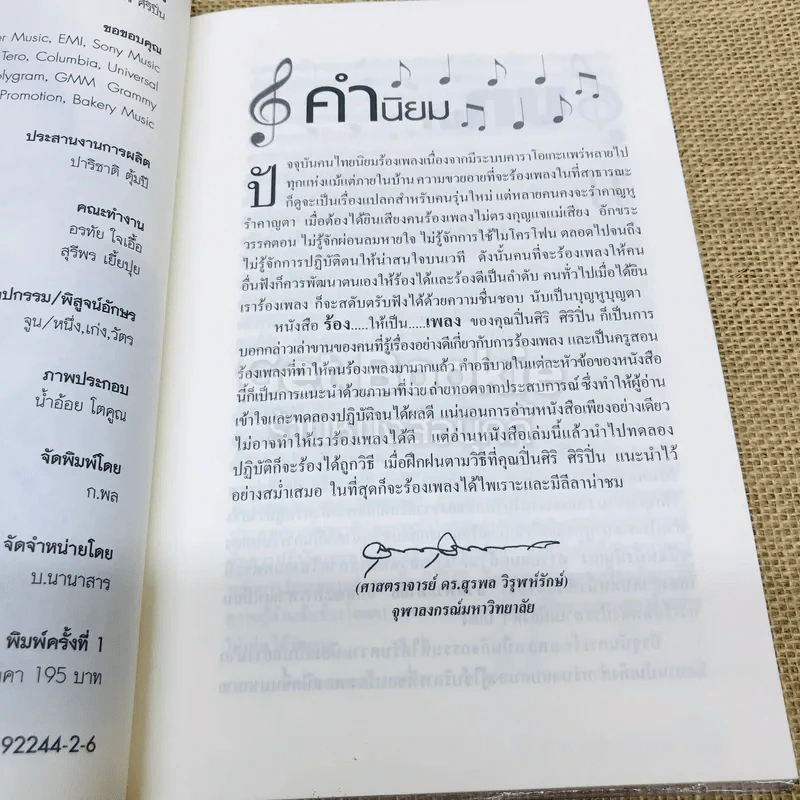 ศิริปิ่น
ขอขอบคุณ
Music, EMI, Sony Music
Tero, Columbia, Universal
olygram, GMM Grammy
Promotion, Bakery Music
ประสานงานการผลิต
ปาริชาติ ตุ้มปี
คณะทำงาน
อรทัย ใจเอื้อ
สุรีพร เยี้ยปุย
ปกรรม/พิสูจน์อักษร
จูน/หนึ่ง,เก่ง,วัตร
ภาพประกอบ
น้ำอ้อย โตคูณ
จัดพิมพ์โดย
ก.พล
จัดจำหน่ายโดย
บ.นานาสาร
พิมพ์ครั้งที่ 1
คา 195 บาท
92244-2-6
คำนิยม
ปัจจุบันคนไทยนิยมร้องเพลงเนื่องจากมีระบบคาราโอเกะแพร่หลายไป
ทุกแห่งแม้แต่ภายในบ้าน ความขวยอายที่จะร้องเพลงในที่สาธารณะ
ก็ดูจะเป็นเรื่องแปลกสำหรับคนรุ่นใหม่ แต่หลายคนคงจะรำคาญหู
รำคาญตา เมื่อต้องได้ยินเสียงคนร้องเพลงไม่ตรงกุญแจแม่เสียง อักขระ
วรรคตอน ไม่รู้จักผ่อนลมหายใจ ไม่รู้จักการใช้ไมโครโฟน ตลอดไปจนถึง
ไม่รู้จักการปฏิบัติตนให้น่าสนใจบนเวที ดังนั้นคนที่จะร้องเพลงให้คน
อื่นฟังก็ควรพัฒนาตนเองให้ร้องได้และร้องดีเป็นลำดับ คนทั่วไปเมื่อได้ยิน
เราร้องเพลง ก็จะสดับตรับฟังได้ด้วยความชื่นชอบ นับเป็นบุญหูบุญตา
หนังสือ ร้อง.....ให้เป็น.....เพลง ของคุณปิ่นศิริ ศิริปิ่น ก็เป็นการ
บอกกล่าวเล่าขานของคนที่รู้เรื่องอย่างดีเกี่ยวกับการร้องเพลง และเป็นครูสอน
ร้องเพลงที่ทำให้คนร้องเพลงมามากแล้ว คำอธิบายในแต่ละหัวข้อของหนังสือ
นี้ก็เป็นการแนะนำด้วยภาษาที่ง่าย ถ่ายทอดจากประสบการณ์ ซึ่งทำให้ผู้อ่าน
เข้าใจและทดลองปฏิบัติจนได้ผลดี แน่นอนการอ่านหนังสือเพียงอย่างเดียว
ไม่อาจทำให้เราร้องเพลงได้ดี แต่อ่านหนังสือเล่มนี้แล้วนำไปทดลอง
ปฏิบัติก็จะร้องได้ถูกวิธี เมื่อฝึกฝนตามวิธีที่คุณปิ่นศิริ ศิริปิ่น แนะนำไว้
อย่างสม่ำเสมอ ในที่สุดก็จะร้องเพลงได้ไพเราะและมีลีลาน่าชม
(ศาสตราจารย์ ดร.สุรพล วิรุฬห์รักษ์)
จุฬาลงกรณ์มหาวิทยาลัย